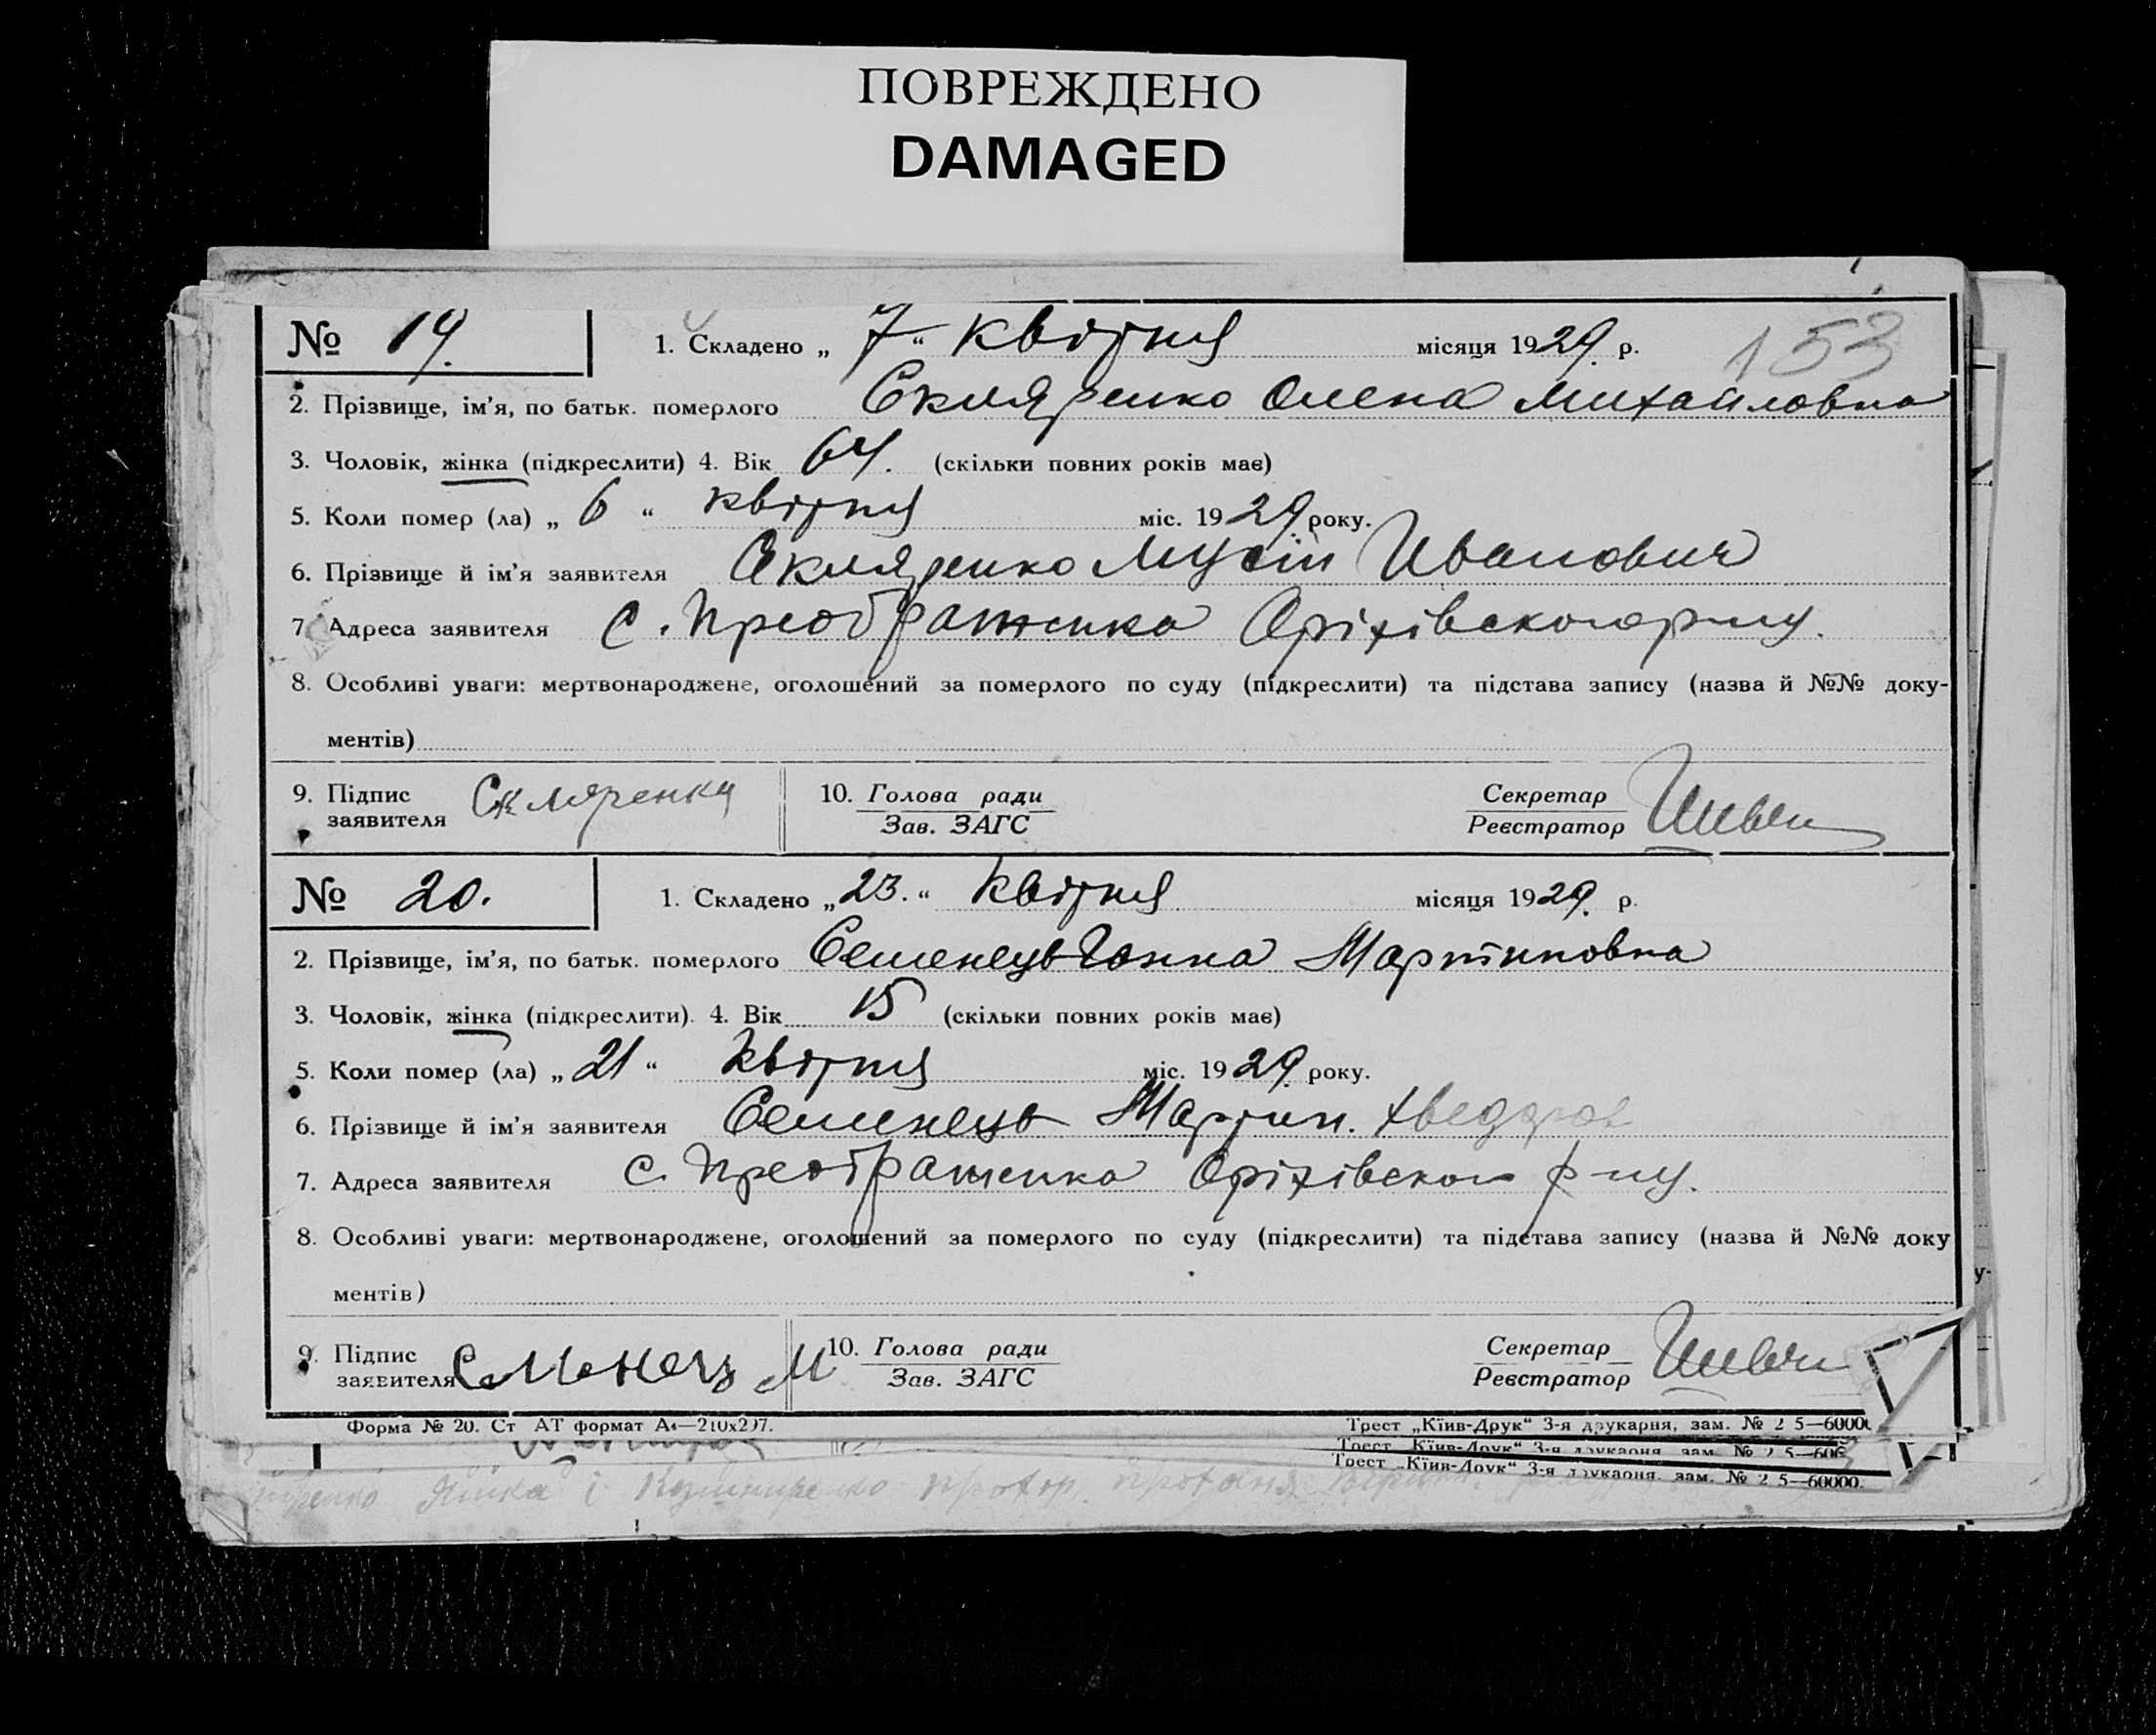 ПОВРЕЖДЕНО
DAMAGED
№ 19. 1. Складено „ 7 “ квітня місяця 1929. р. 153
2. Прізвище, ім’я, по батьк. померлого Скляренко Олена Михайловна
3. Чоловік, жінка (підкреслити) 4. Вік 64. (скільки повних років має)
5. Коли помер (ла) „ 6 “ квітня міс. 1929. року.
6. Прізвище й ім’я заявителя Скляренко Мусій Иванович
7. Адреса заявителя с. Преображенка Оріхівского р-ну.
8. Особливі уваги: мертвонароджене, оголошений за померлого по суду (підкреслити) та підстава запису (назва й №№ доку-
ментів)
9. Підпис заявителя Скляренка 10. Голова ради Зав. ЗАГС Секретар Реєстратор
№ 20. 1. Складено „ 23. “ Квітня місяця 1929. р.
2. Прізвище, ім’я, по батьк. померлого Семенець Ганна Мартиновна
3. Чоловік, жінка (підкреслити). 4. Вік 15 (скільки повних років має)
5. Коли помер (ла) „ 21 “ Квітня міс. 1929. року.
6. Прізвище й ім’я заявителя Семенець Мартин.
7. Адреса заявителя с. Преображенка Оріхівского р-ну.
8. Особливі уваги: мертвонароджене, оголошений за померлого по суду (підкреслити) та підстава запису (назва й №№ доку
ментів)
9. Підпис заявителя М 10. Голова ради Зав. ЗАГС Секретар Реєстратор
Форма № 20. Ст АТ формат А4—210х297. Трест „Київ-Друк“ 3-я друкарня, зам. № 2 5—60000
Трест „Київ-Друк“ 3-я друкарня, зам. № 2 5—606
Трест „Київ-Друк“ 3-я друкарня, зам. № 2 5—60000.